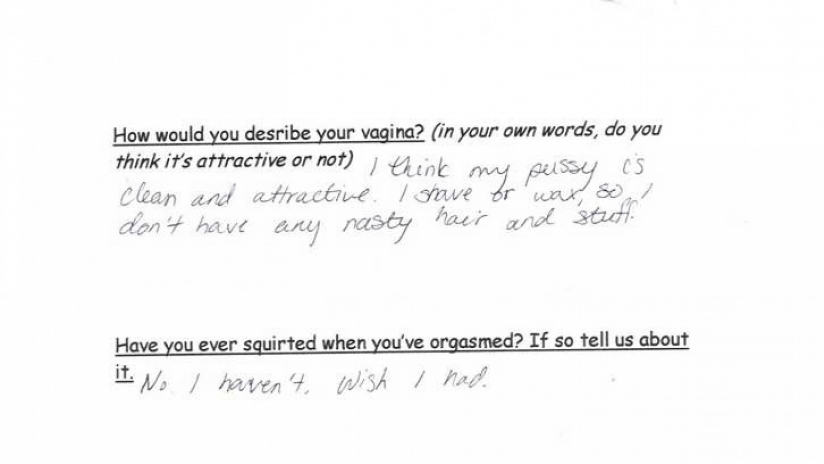 How would you desribe your vagina? (in your own words, do you
think it's attractive or not) I think my pussy is
clean and attractive. I shave or wax, so I
don't have any nasty hair and stuff.
Have you ever squirted when you've orgasmed? If so tell us about
it. No I haven't. Wish I had.